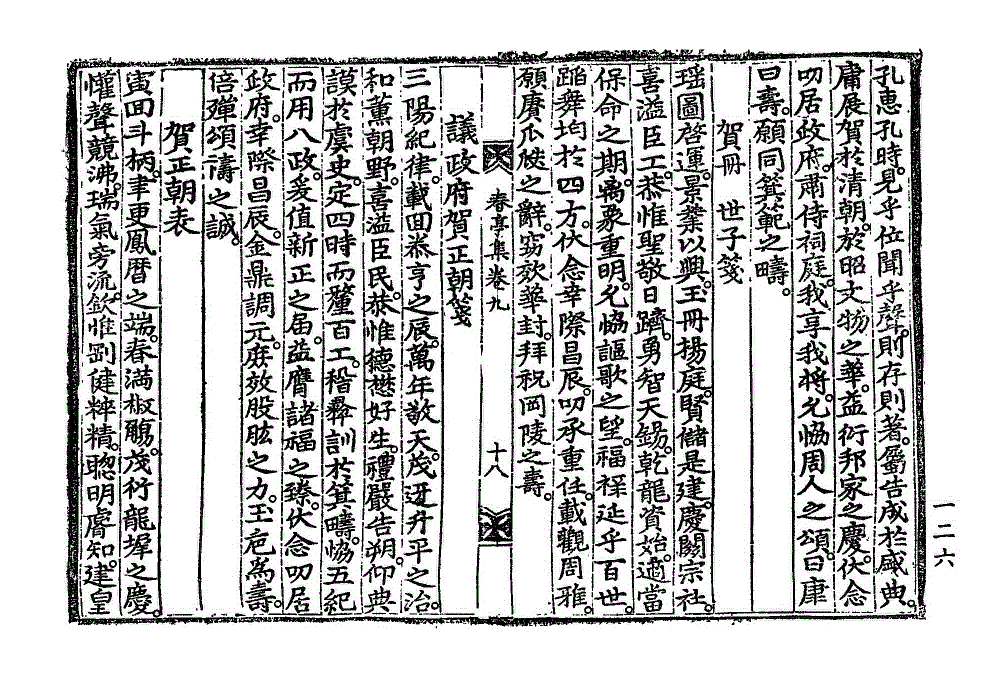 孔惠孔時。見乎位聞乎聲。則存則著。屬告成於盛典。
庸展賀於淸朝。於昭文物之華。益衍邦家之慶。伏念
叨居政府。肅侍祠庭。我享我將。允恊周人之頌。曰康
曰壽。願同箕範之疇。
賀冊 世子箋
瑶圖啓運。景業以興。玉冊揚庭。賢儲是建。慶關宗社。
喜溢臣工。恭惟聖敬日躋。勇智天錫。乾龍資始。適當
保命之期。离象重明。允恊謳歌之望。福祿延乎百世。
蹈舞均於四方。伏念幸際昌辰。叨承重任。載觀周雅。
願賡瓜瓞之辭。竊效華封。拜祝岡陵之壽。
春亭集卷九 十八
議政府賀正朝箋
三陽紀律。載回泰亨之辰。萬年敬天。茂迓升平之治。
和薰朝野。喜溢臣民。恭惟德懋好生。禮嚴告朔。仰典
謨於虞史。定四時而釐百工。稽彝訓於箕疇。恊五紀
而用八政。爰值新正之届。益膺諸福之臻。伏念叨居
政府。幸際昌辰。金鼎調元。庶效股肱之力。玉巵爲壽。
倍殫頌禱之誠。
賀正朝表
寅回斗柄。聿更鳳曆之端。春滿椒觴。茂衍龍墀之慶。
懽聲競沸。瑞氣旁流。欽惟剛健粹精。聰明睿知。建皇
一二六